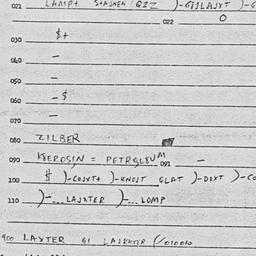 021 LAMPE STAJNEN QZZ )-GIJLAJXT )-G
022 O
030 $+
040 –
050 –
060 –$
070 –
080 ZILBER
090 KEROSIN = PETROLEUM 091 –
100 $ )-COJXT+ )-KNOJT GLAT )-DOXT )-CO
110 )-... LAJXTER )-... LOMP
900 LAXTER 61 LAJEXTER (/010010